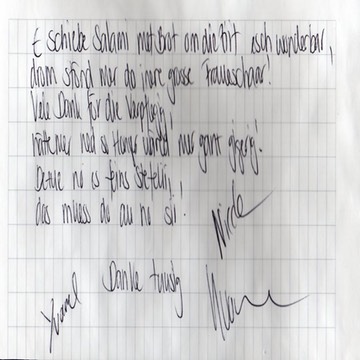 E schiebe Salami met Brot om die Ziit esch wonderbar,
drom stönd mer do i nere grosse Fraueschaar!
Vele Dank för die Verpflegig!
hätte mer ned so Honger wörded mer ganz gigerig!
no es feins
das muess do au no sii!
Nicole
Danke tuusig
Yvonne